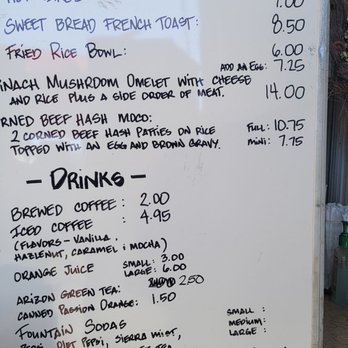 7.00
SWEET BREAD FRENCH TOAST: 8.50
FRIED RICE BOWL: 6.00
ADD AN EGG: 7.25
MUSHROOM OMELET WITH CHEESE
AND RICE PLUS A SIDE ORDER OF MEAT. 14.00
BEEF HASH MOCO:
2 CORNED BEEF HASH PATTIES ON RICE FULL: 10.75
TOPPED WITH AN EGG AND BROWN GRAVY. MINI: 7.75
- DRINKS -
BREWED COFFEE: 2.00
ICED COFFEE: 4.95
(FLAVORS - VANILLA,
HAZELNUT, CARAMEL & MOCHA)
ORANGE JUICE SMALL: 3.00
LARGE: 6.00
ARIZON GREEN TEA: 2.50
CANNED PASSION ORANGE: 1.50
FOUNTAIN SODAS SMALL:
MEDIUM:
DIET PEPSI, SIERRA MIST, LARGE: